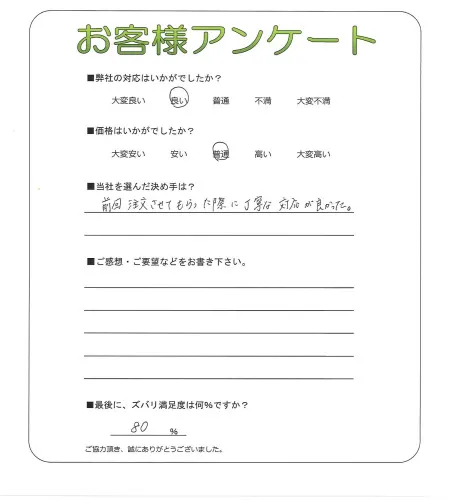 お客様アンケート
■弊社の対応はいかがでしたか?
大変良い 良い 普通 不満 大変不満
■価格はいかがでしたか?
大変安い 安い 普通 高い 大変高い
■当社を選んだ決め手は?
前回注文させてもらった際に丁寧な対応が良かった。
■ご感想・ご要望などをお書き下さい。
■最後に、ズバリ満足度は何%ですか?
80 %
ご協力頂き、誠にありがとうございました。